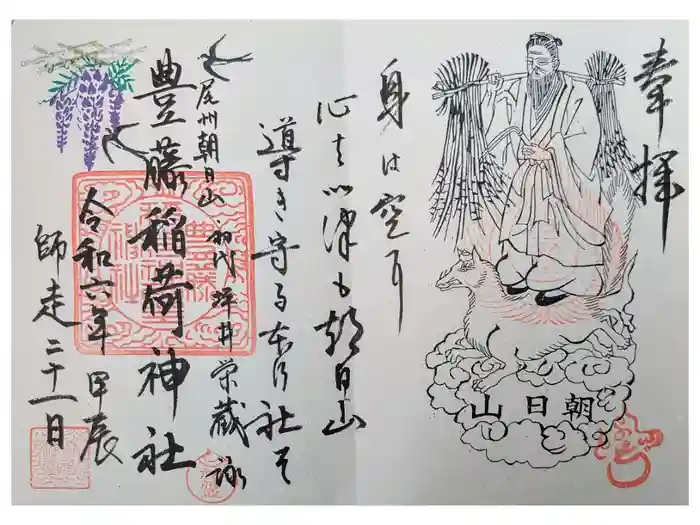 奉拝
朝日山
身は空耳
心を以津も朝日山
導き守る
社そ
尾州朝日山 初代 坪井栄蔵 詠
豊藤稲荷神社
令和六年 甲辰
師走二十一日